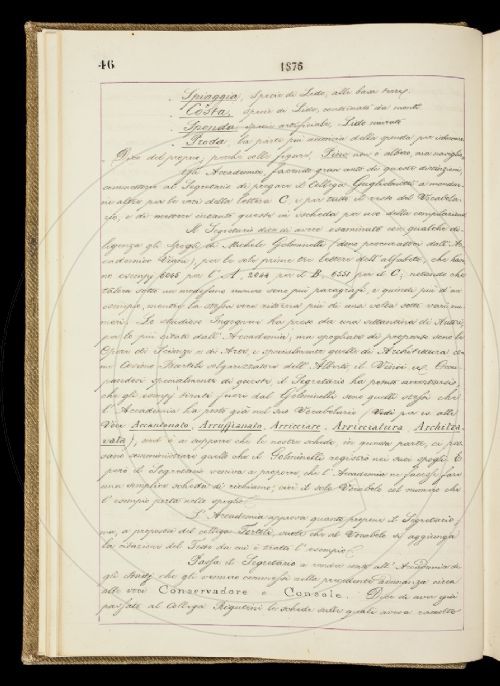 46
1876
Spiaggia, specie di Lido, alla bassa
Costa, specie di Lido, costituito da monte
Sponda, specie artificiale, Lido murato
Proda, la parte più estrema della sponda per
Dire del proprio, perché alla figura, Lido non è albero, ma
L'Accademia, facendo gran conto di queste distinzioni
commetteva al Segretario di pregare il Collega Guglielmotti a mandar-
ne altre per le voci della lettera C e per tutto il resto del Vocabola-
rio, e di mettere intanto queste in ischeda per uso della compilazione
Il Segretario dice di avere esaminato con qualche di-
ligenza gli Spogli di Michele Golminelli (dono procuratoci dall'Ac-
cademico Vinci), per le sole prime tre lettere dell'alfabeto, che han-
no esempj 6045 per l'A, 2044 per il B, 6551 per il C; notando che
talora sotto un medesimo numero sono più paragrafi, e quindi più d'un
esempio, mentre la stessa voce ritorna più di una volta sotto varii nu-
meri. Lo studioso Ingegnere ha preso da una settantina di Autori,
per lo più citati dall'Accademia, ma spogliati di proposito sono le
Opere di Scienze e di Arte, e specialmente quelle di Architettura co-
me l'Alberti il Vinci ec. Occu-
pandosi specialmente di queste, il Segretario ha potuto avvertire
che gli esempj tirati fuori dal Golminelli sono quelli stessi che
l'Accademia ha posto già nel suo Vocabolario (Vedi per es. alle
Voci Accantonato, Acciuffinato, Arricciare, Arricciatura, Architra-
vata), onde è a supporre che le nostre schede, in questa parte, ci pos-
sano somministrare quello che il Golminelli registrò nei suoi spogli. E
però il Segretario veniva a proporre che l'Accademia ne facesse fare
una semplice scheda di richiamo, cioè il solo Vocabolo col numero che
l'esempio porta nello spoglio.
L'Accademia approva quanto propone il Segretario,
ma, a proposta del collega Tortoli, vuole che al Vocabolo si aggiunga
la citazione del Testo da cui è tratto l'esempio.
Passa il Segretario a render conto all'Accademia de-
gli studj che gli vennero commessi nella precedente adunanza circa
alle voci Conservadore e Console. Dice di aver già
passate al Collega Rigutini le schede sulle quali aveva raccolte